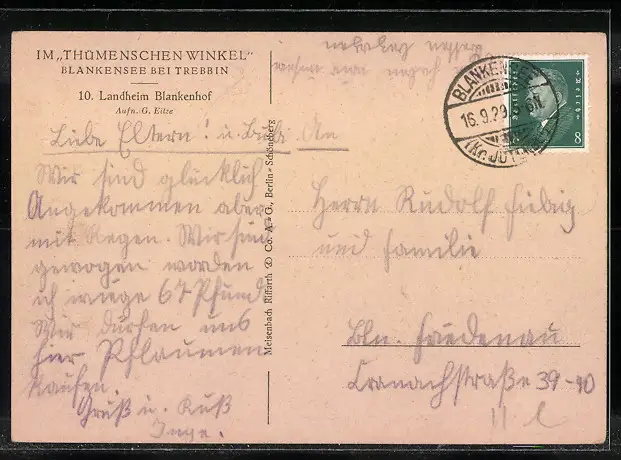 IM „THÜMENSCHEN WINKEL"
BLANKENSEE BEI TREBBIN
10. Landheim Blankenhof
Aufn. G. Eitze
Liebe Eltern! u. Bubi.
Wir sind glücklich
Angekommen aber
mit Regen. Wir sind
gewogen worden
ich wiege 67 Pfund
Wir dürfen uns
hier Pflaumen
kaufen.
Gruß u. Kuß
Inge.
Meisenbach Riffarth & Co. A.-G., Berlin-Schöneberg
BLANKENSEE
16.9.29
(Kr. JÜTERBOG
8
An
Herrn Rudolf Fiebig
und Familie
Bln. Friedenau
Cranachstraße 39-40
II. l